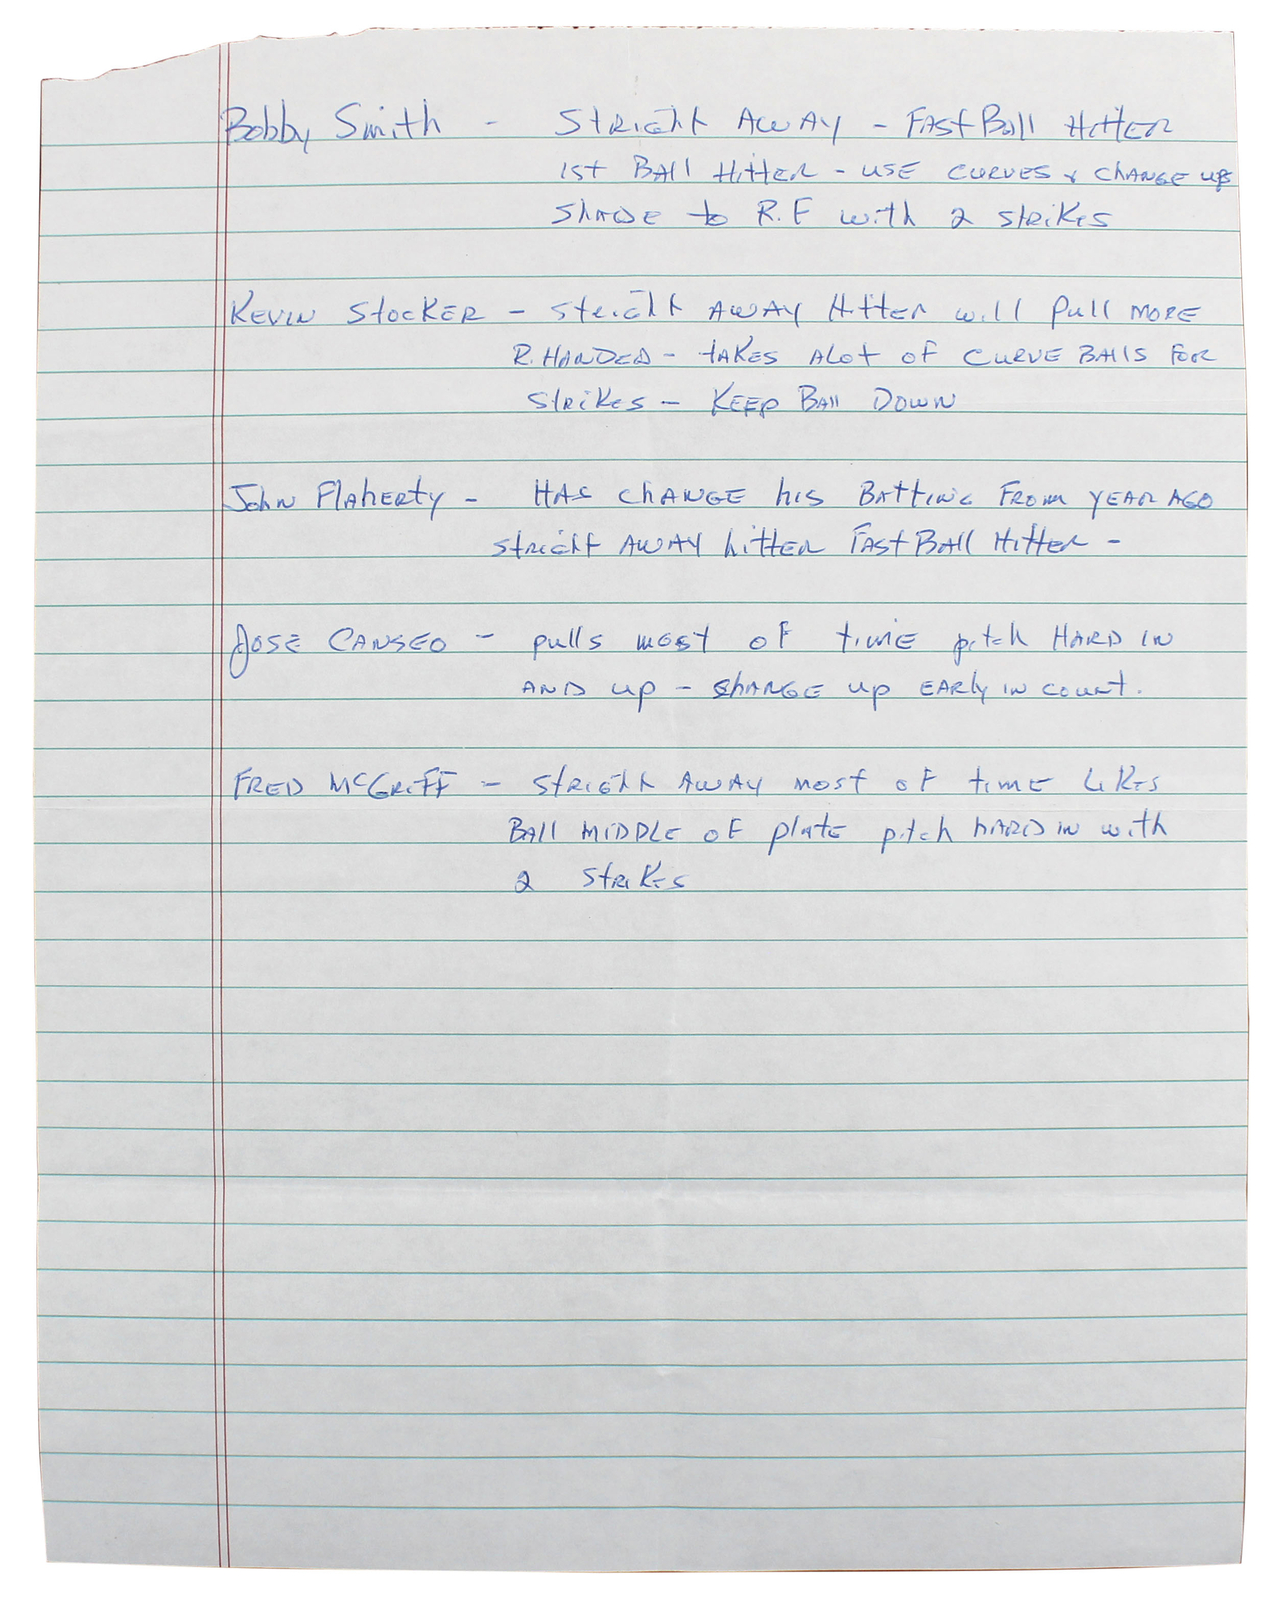 Bobby Smith - Stright AWAY - FAST Ball Hitter
1st Ball Hitter - use curves & change up
shade to R.F with 2 strikes
Kevin Stocker - stright AWAY Hitter will pull more
R. Handed - takes alot of curve balls for
strikes - Keep Ball Down
John Flaherty - Has change his Batting From year ago
stright AWAY hitter Fast Ball Hitter -
Jose Canseo - pulls most of time pitch Hard in
and up - change up early in count.
Fred McGriff - stright AWAY most of time likes
Ball middle of plate pitch hard in with
2 strikes